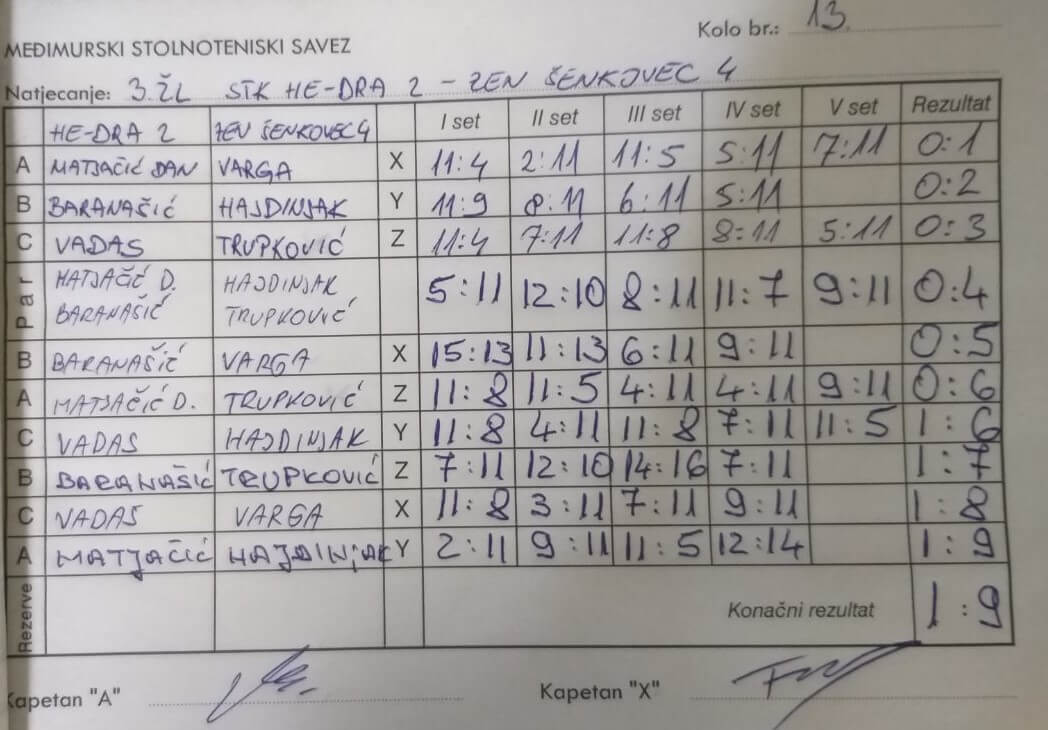 Kolo br.: 13.
MEĐIMURSKI STOLNOTENISKI SAVEZ
Natjecanje: 3.ŽL STK HE-DRA 2 - ZEN ŠENKOVEC 4
HE-DRA 2 ZEN ŠENKOVEC 4 I set II set III set IV set V set Rezultat
A MATJAČIĆ DAN VARGA X 11:4 2:11 11:5 5:11 7:11 0:1
B BARANAŠIĆ HAJDINJAK Y 11:9 8:11 6:11 5:11 0:2
C VADAS TRUPKOVIĆ Z 11:4 7:11 11:8 8:11 5:11 0:3
Par MATJAČIĆ D. HAJDINJAK 5:11 12:10 8:11 11:7 9:11 0:4
BARANAŠIĆ TRUPKOVIĆ
B BARANAŠIĆ VARGA X 15:13 11:13 6:11 9:11 0:5
A MATJAČIĆ D. TRUPKOVIĆ Z 11:8 11:5 4:11 4:11 9:11 0:6
C VADAS HAJDINJAK Y 11:8 4:11 11:8 7:11 11:5 1:6
B BARANAŠIĆ TRUPKOVIĆ Z 7:11 12:10 14:16 7:11 1:7
C VADAS VARGA X 11:8 3:11 7:11 9:11 1:8
A MATJAČIĆ HAJDINJAK Y 2:11 9:11 11:5 12:14 1:9
Rezerve Konačni rezultat 1:9
Kapetan "A" Kapetan "X"